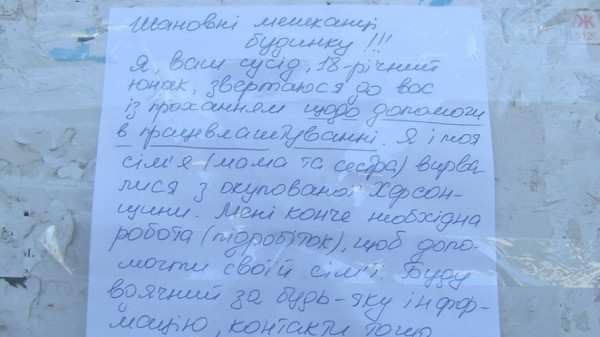 Шановні мешканці
будинку !!!
Я, ваш сусід, 18-річний
юнак, звертаюся до вас
із проханням щодо допомоги
в працевлаштуванні. Я і моя
сім'я (мама та сестра) вирва-
лися з окупованої Херсон-
щини. Мені конче необхідна
робота (підробіток), щоб допо-
могти своїй сім'ї. Буду
вдячний за будь-яку інфор-
мацію, контакти тощо
Ж